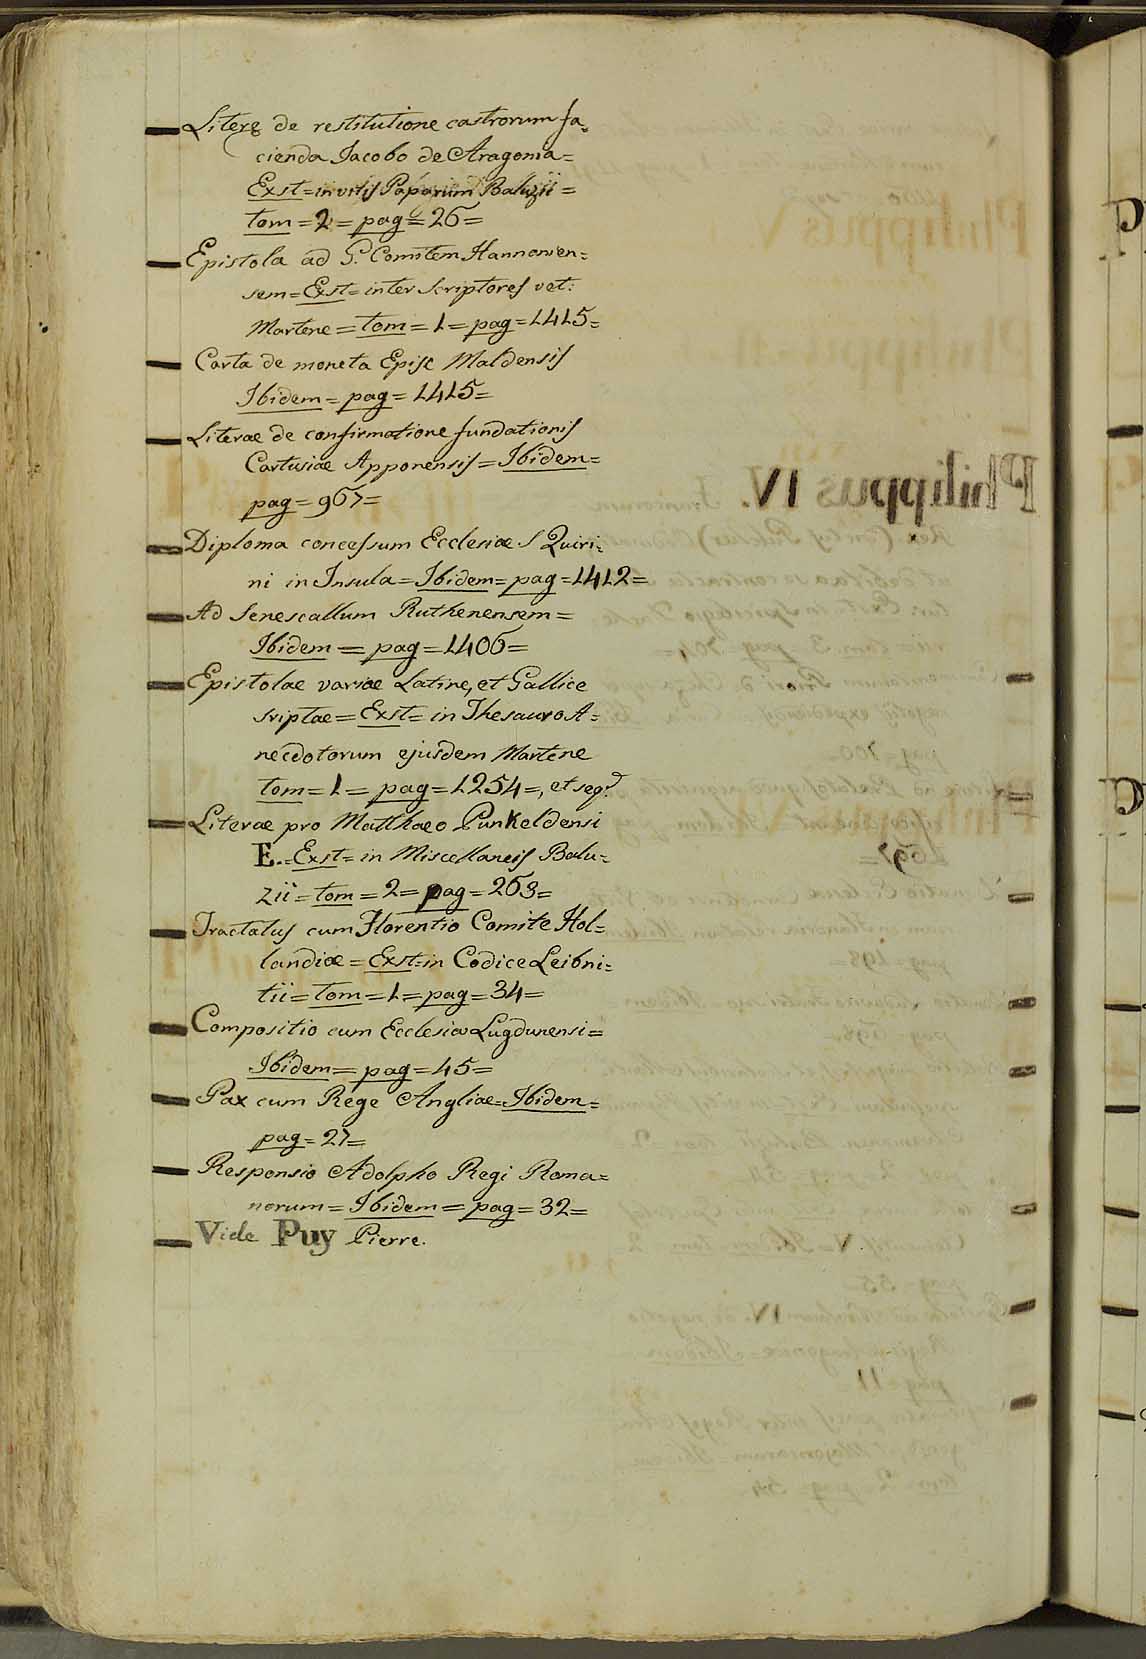 Literę de restitutione castrorum fa=
cienda Jacobo de Aragonia=
Exst=in vitis Paparum Baluzii=
tom=2=pag=26=
Epistola ad G. Comitem Hannonien=
sem=Exst=inter scriptores vet:
Martene=tom=1=pag=1415=
Carta de moneta Episc Maldensis
Ibidem=pag=1415=
Literae de confirmatione fundationis
Cartusiae Apponensis=Ibidem=
pag=967=
Diploma concessum Ecclesiae S Quiri=
ni in Insula=Ibidem=pag=1412=
Ad Senescallum Ruthenensem=
Ibidem=pag=1406=
Epistolae variae Latine, et Gallice
sriptae=Exst=in Thesauro A=
necdotorum ejusdem Martene
tom=1=pag=1254=, et seq.
Literae pro Matthaeo Punkeldensi
E.=Exst=in Miscellaneis Balu=
zii=tom=2=pag=263=
Tractatus cum Florentio Comite Hol=
landiae=Exst=in Codice Leibni=
tii=tom=1=pag=34=
Compositio cum Ecclesia Lugdunensi=
Ibidem=pag=45=
Pax cum Rege Angliae=Ibidem=
pag=27=
Responsio Adolpho Regi Roma=
norum=Ibidem=pag=32=
Vide Puy Pierre.